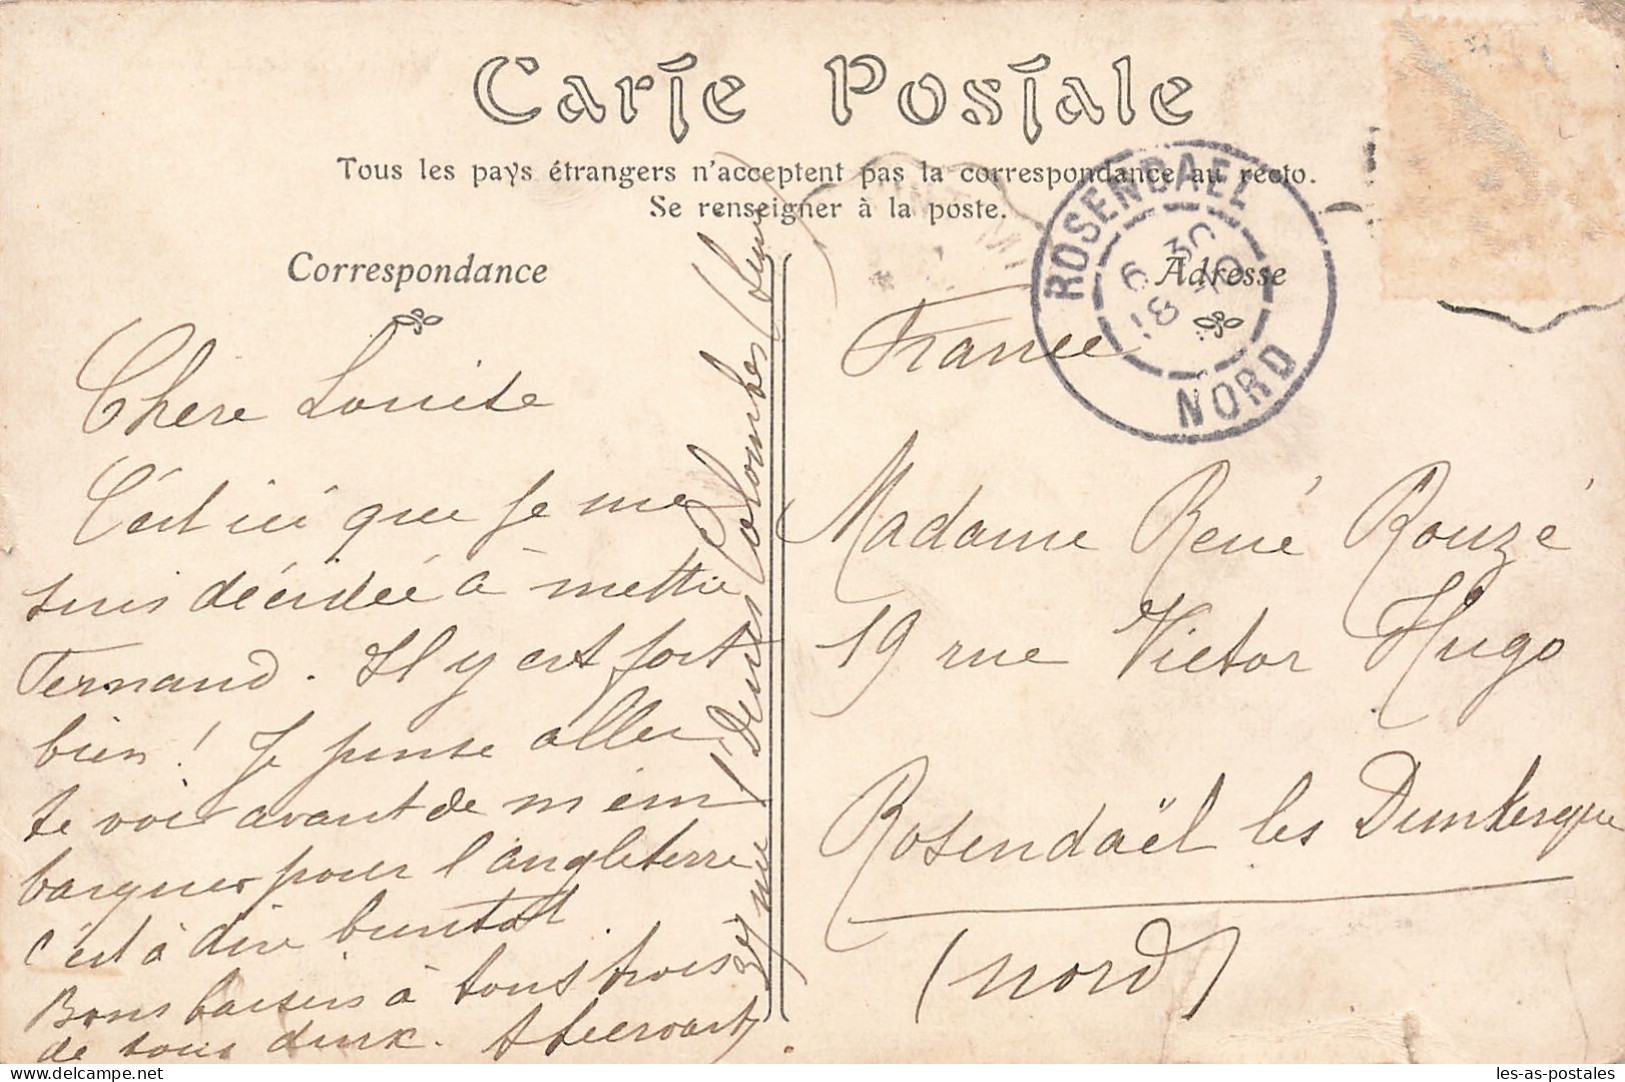 Carte Postale
Tous les pays étrangers n'acceptent pas la correspondance au recto.
Se renseigner à la poste.
Correspondance
Adresse
ROSENDAEL
6 30
18
NORD
Chere Louise
C'est ici que je me
suis décidée à mettre
Fernand. Il y est fort
bien! Je pense aller
te voir avant de m'em
barquer pour l'angleterre
c'est à dire bientôt
Bons baisers à tous trois
de tous deux.
rue Denis Colombes Seine
France
Madame René Rouzé
19 rue Victor Hugo
Rosendaël les Dunkerque
(Nord)
delcampe.net
les-as-postales